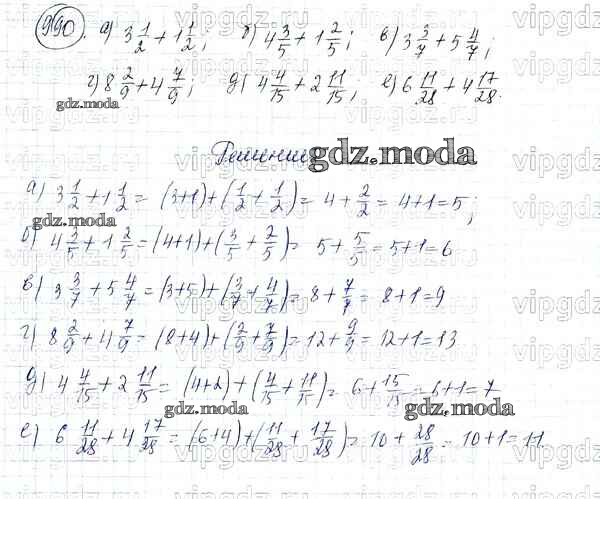 990. а) 3 1/2 + 1 1/2; б) 4 3/5 + 1 2/5; в) 3 3/7 + 5 4/7;
г) 8 2/9 + 4 7/9; д) 4 4/15 + 2 11/15; е) 6 11/28 + 4 17/28.
gdz.moda
Решение
gdz.moda
а) 3 1/2 + 1 1/2 = (3+1) + (1/2 + 1/2) = 4 + 2/2 = 4+1=5;
gdz.moda
б) 4 3/5 + 1 2/5 = (4+1) + (3/5 + 2/5) = 5 + 5/5 = 5+1=6
в) 3 3/7 + 5 4/7 = (3+5) + (3/7 + 4/7) = 8 + 7/7 = 8+1=9
г) 8 2/9 + 4 7/9 = (8+4) + (2/9 + 7/9) = 12 + 9/9 = 12+1=13
д) 4 4/15 + 2 11/15 = (4+2) + (4/15 + 11/15) = 6 + 15/15 = 6+1=7
gdz.moda
gdz.moda
е) 6 11/28 + 4 17/28 = (6+4) + (11/28 + 17/28) = 10 + 28/28 = 10+1=11
vipgdz